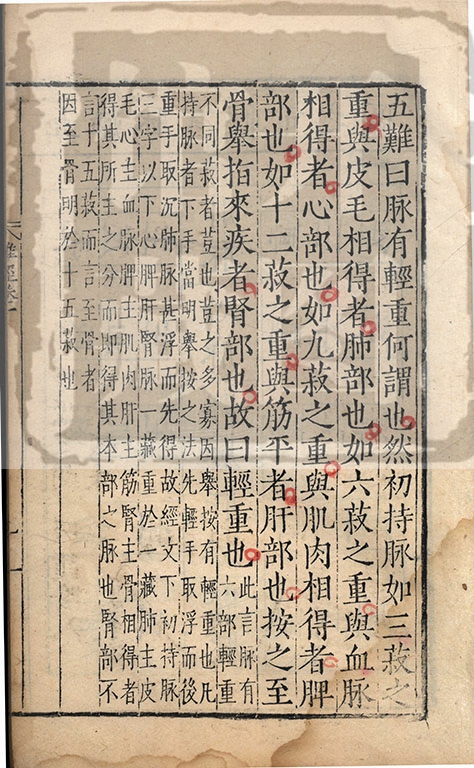 五難曰脉有輕重何謂也然初持脉如三菽之
重與皮毛相得者肺部也如六菽之重與血脉
相得者心部也如九菽之重與肌肉相得者脾
部也如十二菽之重與筋平者肝部也按之至
骨舉指來疾者腎部也故曰輕重也
此言脉有
六部輕重
不同菽者豆也豆之多寡因舉按有輕重也凡
持脉者下手當明舉按之法先輕手取浮而後
重手取沉肺脉甚浮而先得故經文下初持脉
三字以下心脾肝腎脉一藏重於一藏肺主皮
毛心主血脉脾主肌肉肝主筋腎主骨相得者
得其所主之分而即得其本部之脉也腎部不
言十五菽而言至骨者
因至骨明於十五菽也